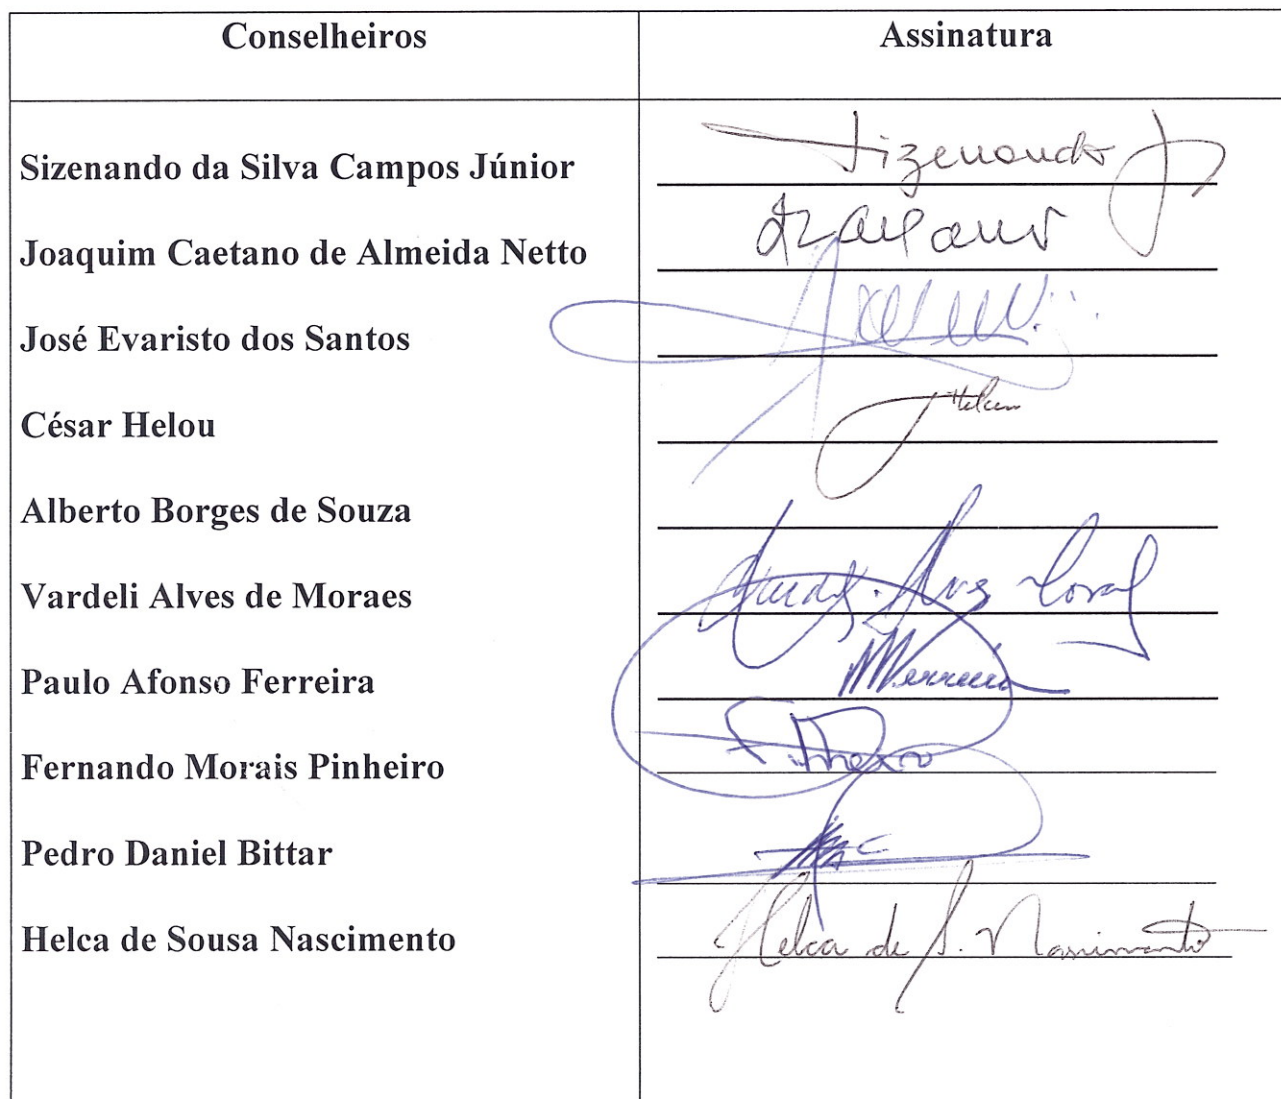 Conselheiros Assinatura
Sizenando da Silva Campos Júnior Sizenando J
Joaquim Caetano de Almeida Netto
José Evaristo dos Santos
César Helou Helou
Alberto Borges de Souza
Vardeli Alves de Moraes Alves
Paulo Afonso Ferreira Ferreira
Fernando Morais Pinheiro Pinheiro
Pedro Daniel Bittar
Helca de Sousa Nascimento Helca de S. Nascimento